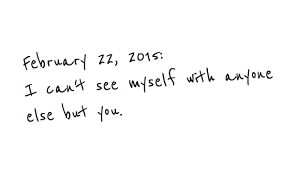 February 22, 2015:
I can't see myself with anyone
else but you.